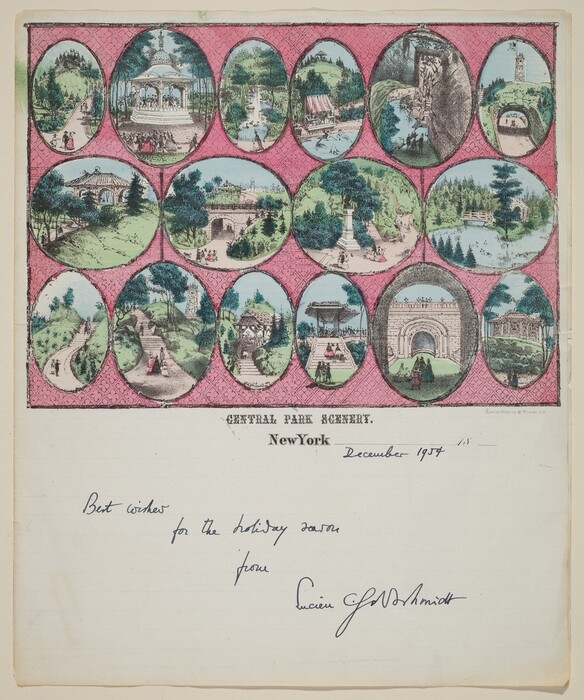 CENTRAL PARK SCENERY.
NewYork 18
December 1954
Best wishes
for the holiday season
from
Lucien Goldschmidt